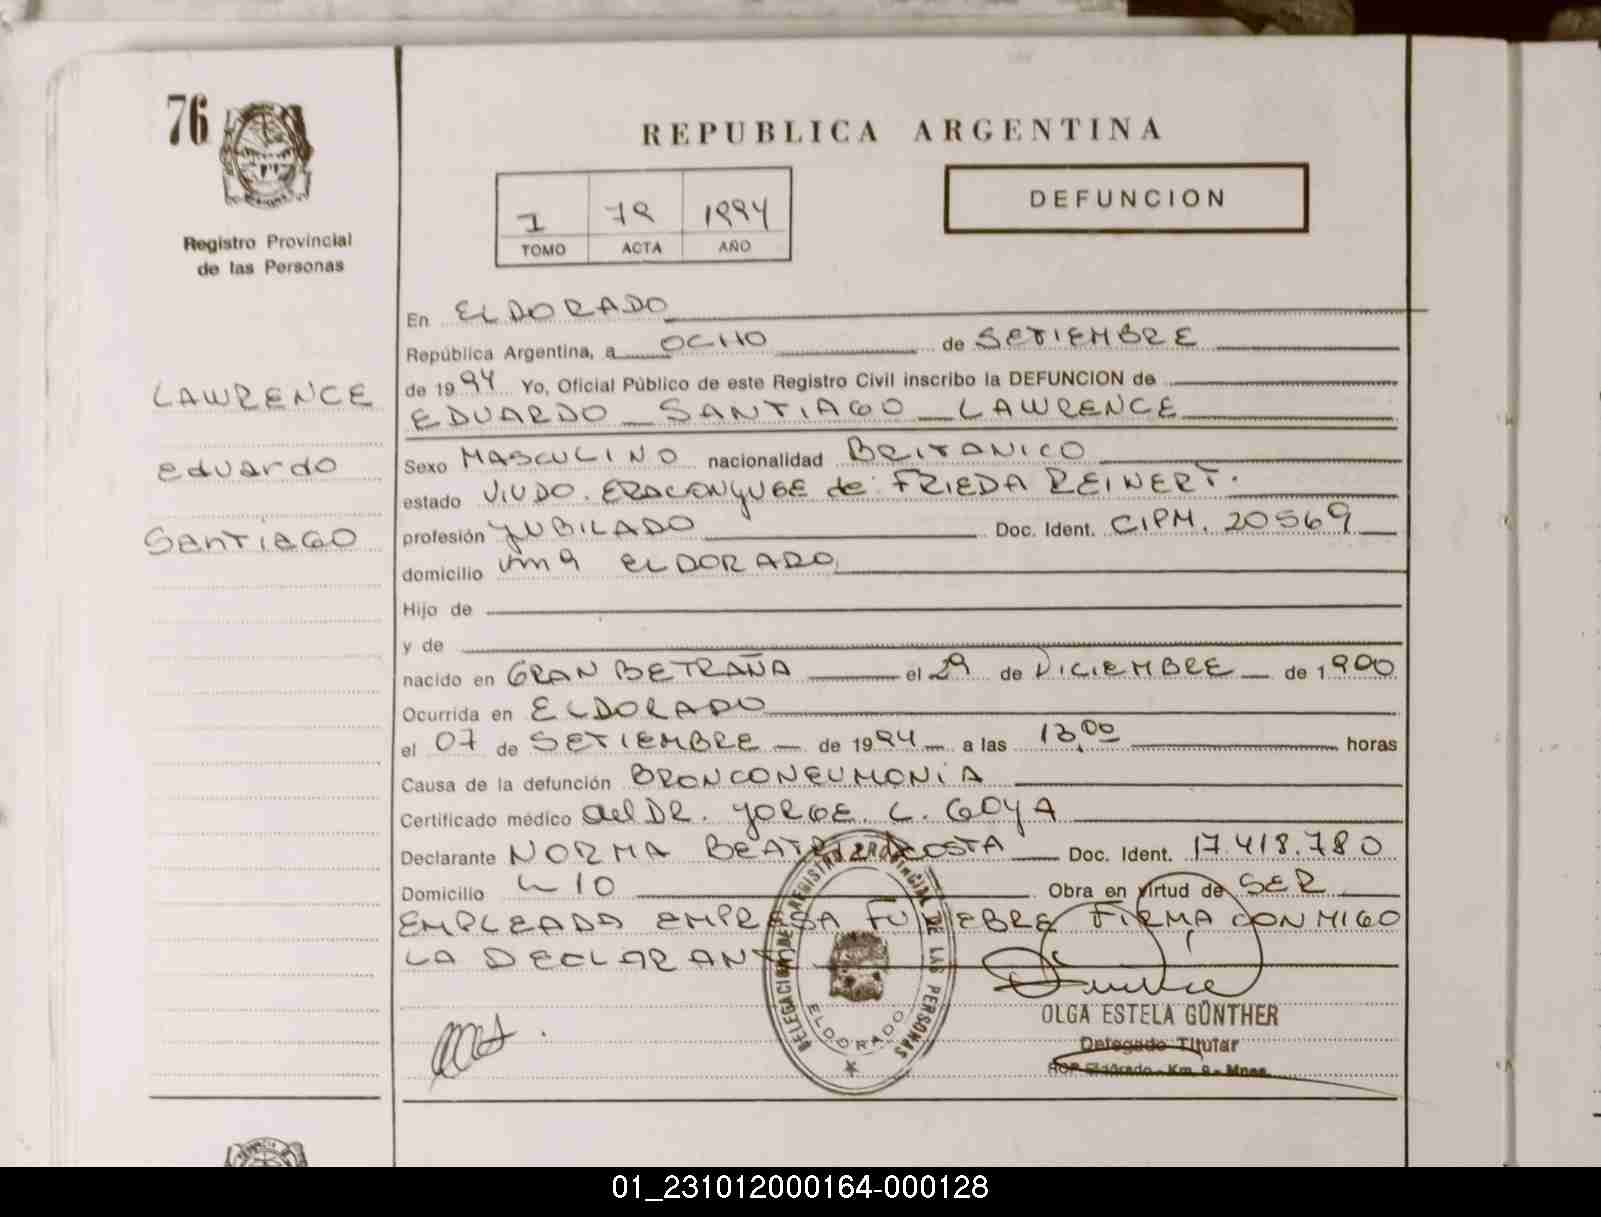 76
Registro Provincial
de las Personas
LAWRENCE
eduardo
SanTiaGO
REPUBLICA ARGENTINA
DEFUNCION
I 78 1994
TOMO ACTA AÑO
En ELDORADO
República Argentina, a OCHO de SETIEMBRE
de 1994 Yo, Oficial Público de este Registro Civil inscribo la DEFUNCION de
EDUARDO SANTIAGO LAWRENCE
Sexo MASCULINO nacionalidad BRITANICO
estado VIUDO. ERACONYUGE de FRIEDA REINERT.
profesión JUBILADO Doc. Ident. CIPM. 20569
domicilio Km 9 ELDORADO
Hijo de
y de
nacido en GRAN BETRAÑA el 29 de DICIEMBRE de 1900
Ocurrida en ELDORADO
el 07 de SETIEMBRE de 1994 a las 13,00 horas
Causa de la defunción BRONCONEUMONIA
Certificado médico del DR. JORGE L. GOYA
Declarante NORMA BEATRIZ ACOSTA Doc. Ident. 17.418.780
Domicilio 10 Obra en virtud de SER
EMPLEADA EMPRESA FUNEBRE FIRMA CONMIGO
LA DECLARANTE
DELEGACION DEL REGISTRO PROVINCIAL DE LAS PERSONAS
ELDORADO
OLGA ESTELA GÜNTHER
Delegado Titular
Eldorado - Km. 9 - Mnes.
01_231012000164-000128